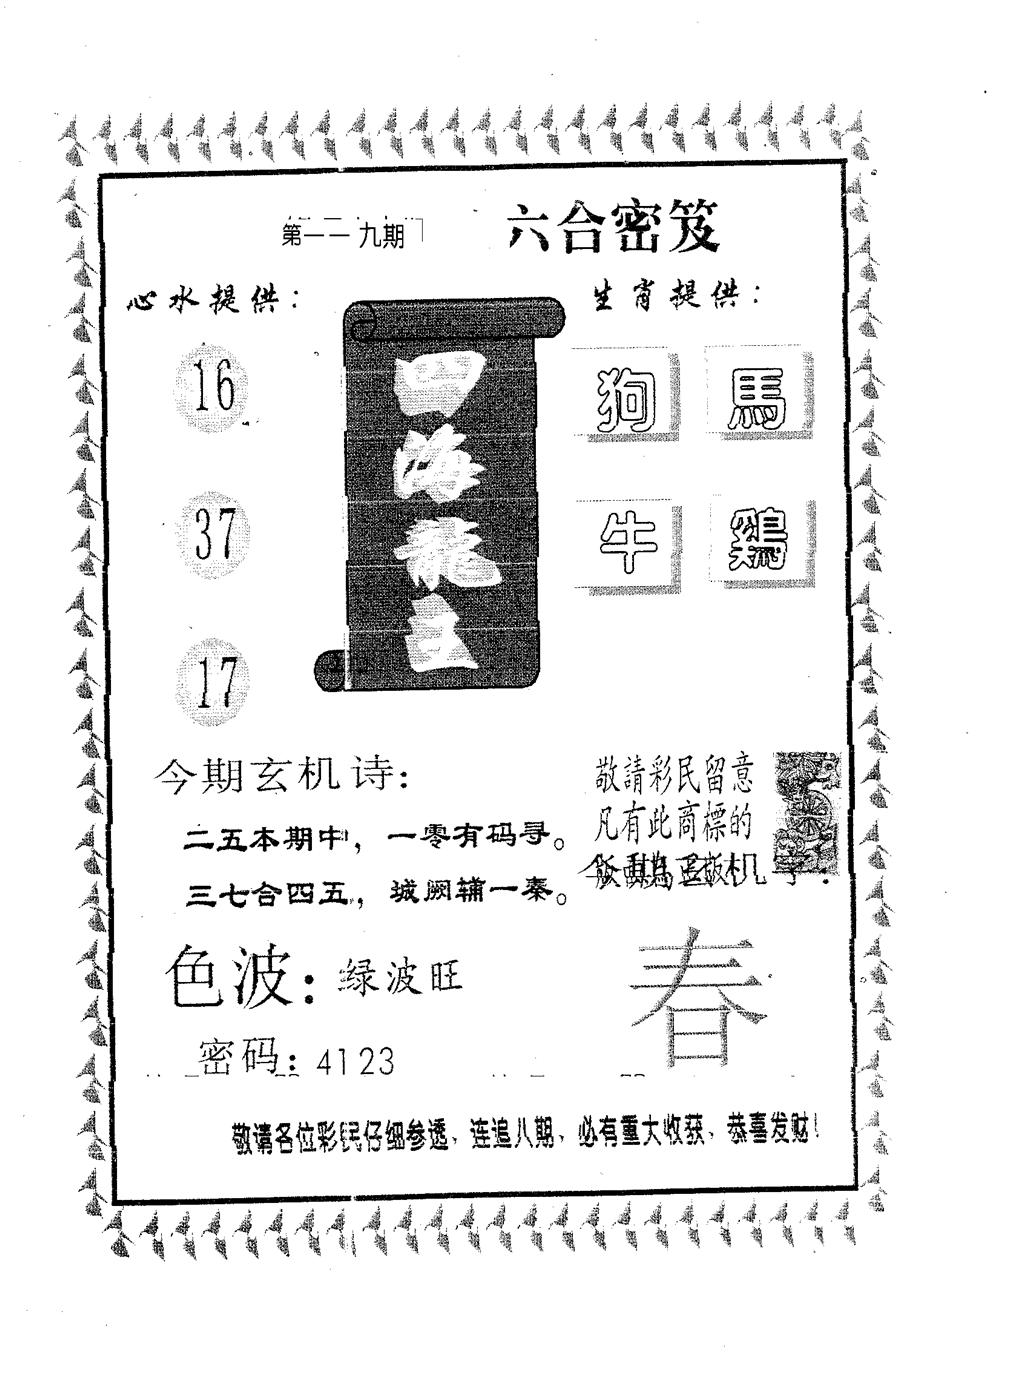 第一一九期
六合密笈
心水提供：
生肖提供：
16
37
17
四海龍王
狗 馬
牛 鷄
今期玄机诗：
二五本期中，一零有码寻。
三七合四五，城阙辅一秦。
敬請彩民留意
凡有此商標的
色波：绿波旺
春
密码：4123
敬请各位彩民仔细参透、连追八期、必有重大收获、恭喜发财！